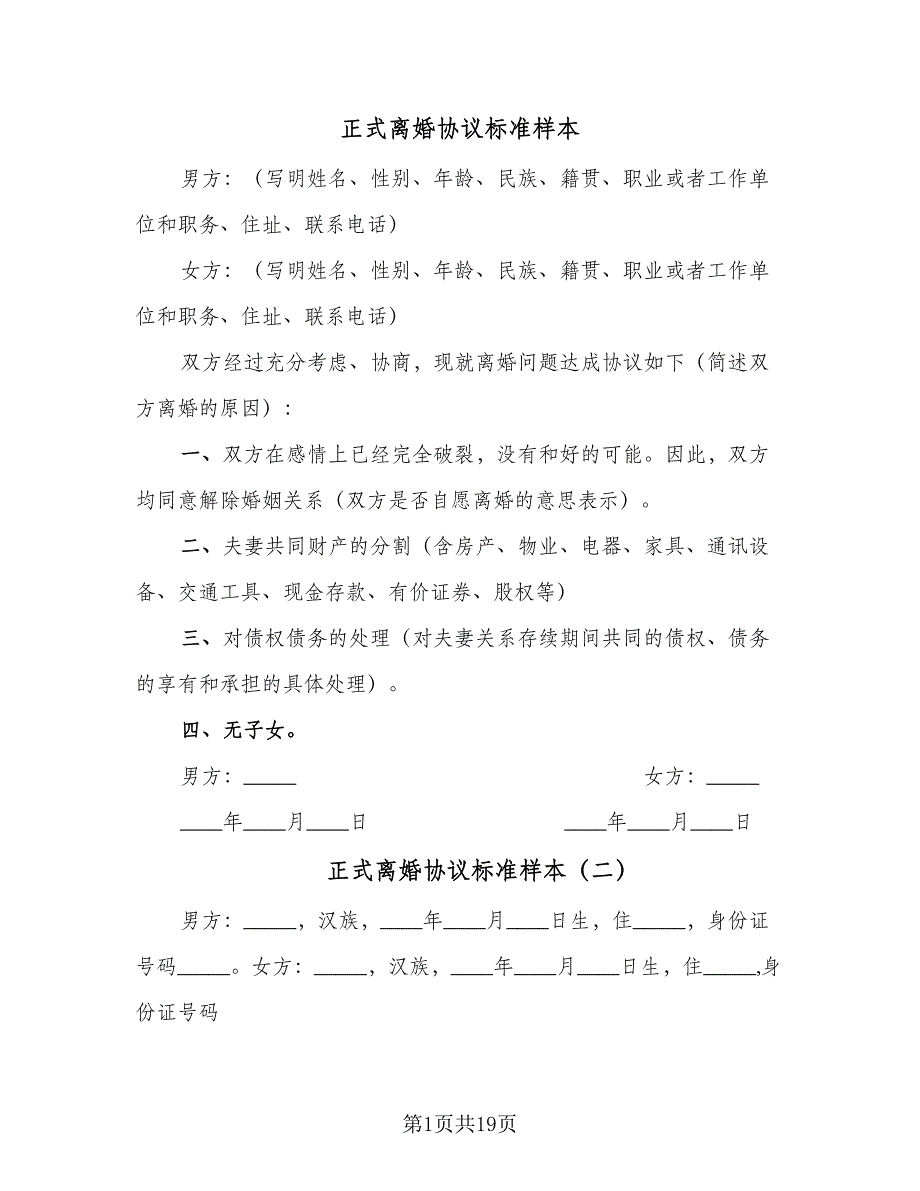 正式离婚协议标准样本
男方：（写明姓名、性别、年龄、民族、籍贯、职业或者工作单
位和职务、住址、联系电话）
女方：（写明姓名、性别、年龄、民族、籍贯、职业或者工作单
位和职务、住址、联系电话）
双方经过充分考虑、协商，现就离婚问题达成协议如下（简述双
方离婚的原因）：
一、双方在感情上已经完全破裂，没有和好的可能。因此，双方
均同意解除婚姻关系（双方是否自愿离婚的意思表示）。
二、夫妻共同财产的分割（含房产、物业、电器、家具、通讯设
备、交通工具、现金存款、有价证券、股权等）
三、对债权债务的处理（对夫妻关系存续期间共同的债权、债务
的享有和承担的具体处理）。
四、无子女。
男方：_____ 女方：_____
____年____月____日 ____年____月____日
正式离婚协议标准样本（二）
男方：_____，汉族，____年____月____日生，住_____，身份证
号码_____。女方：_____，汉族，____年____月____日生，住_____,身
份证号码
第1页共19页